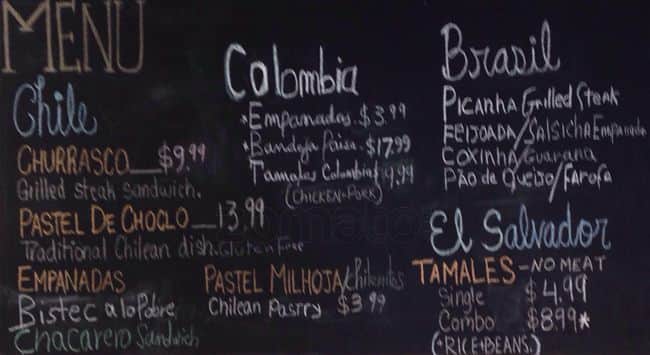 MENU
Chile
CHURRASCO $9.99
Grilled steak sandwich.
PASTEL DE CHOCLO 13.99
Traditional Chilean dish. Gluten Free
EMPANADAS
Bistec a lo Pobre
Chacarero Sandwich
PASTEL MILHOJA/Chilenitos
Chilean Pastry $3.99
Colombia
*Empanadas $3.99
*Bandeja Paisa $17.99
Tamales Colombia 9.99
(CHICKEN-PORK)
Brasil
PICANHA Grilled Steak
FEIJOADA/SALSICHA Empanada
COXINHA/Guarana
PÃO DE QUEIJO/FAROFA
El Salvador
TAMALES - NO MEAT
Single $4.99
Combo $8.99*
(*RICE+BEANS.)